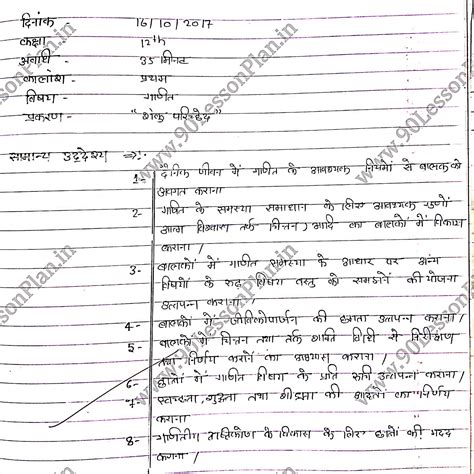 दिनांक 16/10/2017
कक्षा - 12th
अवधि - 35 मिनट
कालांश - प्रथम
विषय - गणित
प्रकरण - "शंकु परिच्छेद"
सामान्य उद्देश्य =>:
1- दैनिक जीवन में गणित के आवश्यक नियमों से बालकों को
अवगत कराना
2- गणित के समस्या समाधान के लिए आवश्यक गुणों
आत्म विश्वास तर्क चिन्तन, आदि का बालकों में विकास
कराना।
3- बालकों में गणित समस्या के आधार पर अन्य
विषयों के विषय वस्तु को समझने की योग्यता
उत्पन्न कराना।
4- बालकों में जीविकोपार्जन की क्षमता उत्पन्न कराना।
5- बालकों में चिन्तन तथा तर्क शक्ति विधि से निरीक्षण
तथा निर्णय कराने का अभ्यास कराना।
6- छात्रों में गणित विषय के प्रति रूचि उत्पन्न कराना।
7- स्वच्छता, शुद्धता तथा शीघ्रता की आदतों का निर्णय
कराना
8- गणितीय दृष्टिकोण के विकास के लिए छात्रों की मदद
कराना।
www.90LessonPlan.in